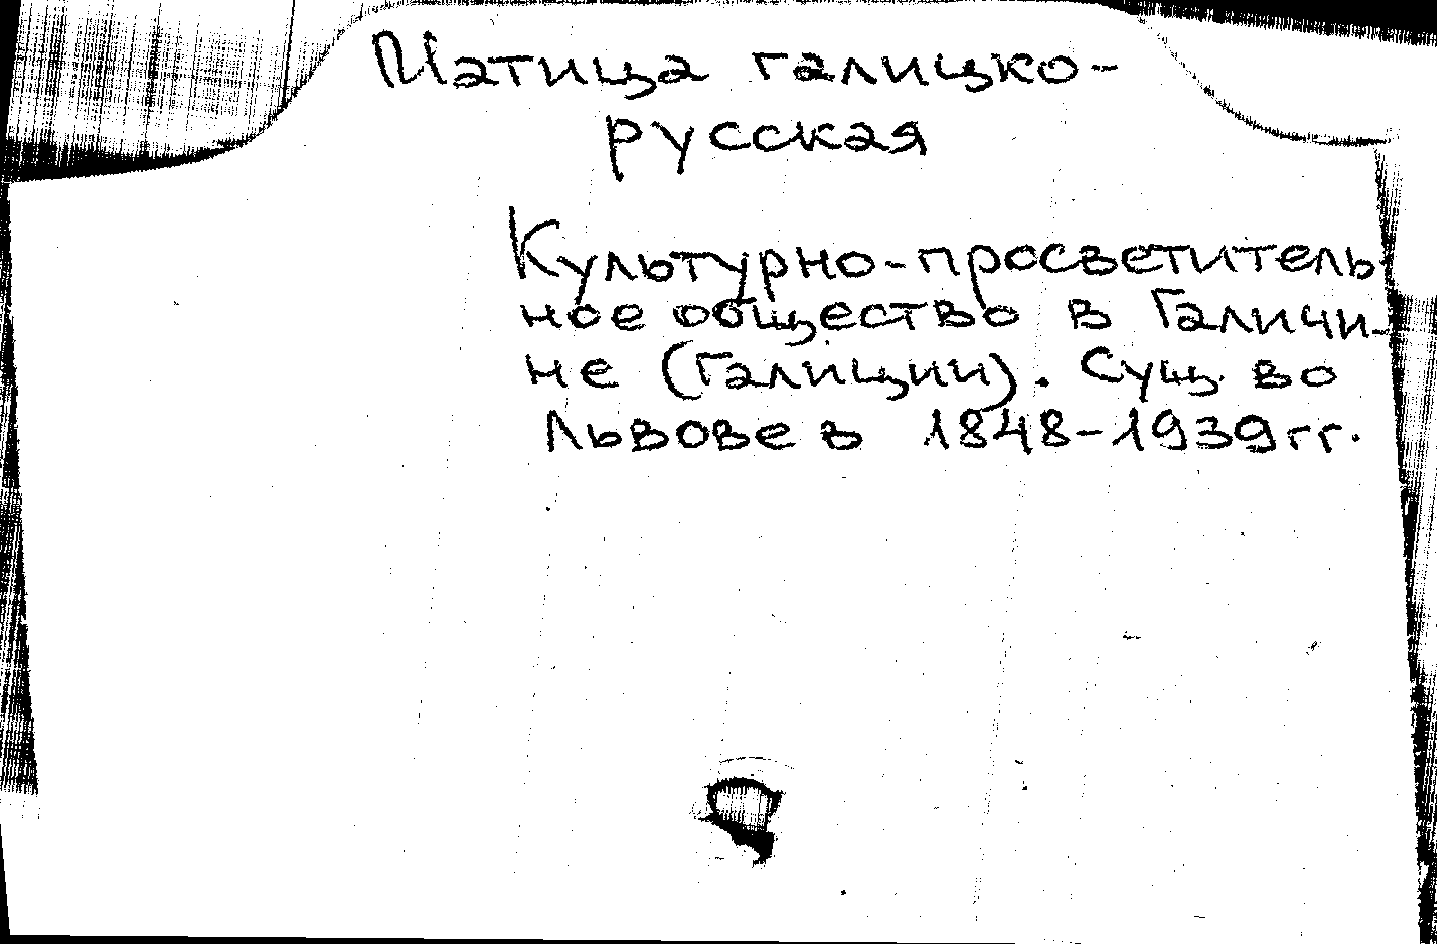 Матица галицко-
русская
Культурно-просветитель-
ное общество в Галичи-
не (Галиции). Сущ. во
Львове в 1848-1939гг.